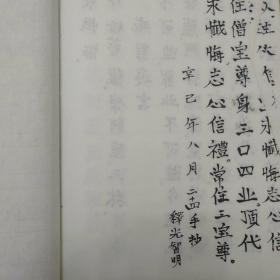 求懺悔志心信
住僧宝尊身三口四业頂代
求懺悔志心信禮常住三宝尊
辛己年八月二十四手抄
釋光智明